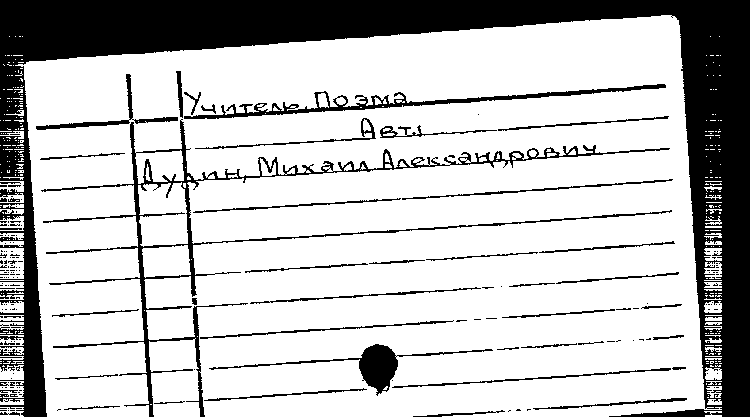 Учитель. Поэма.
Авт.:
Дудин, Михаил Александрович